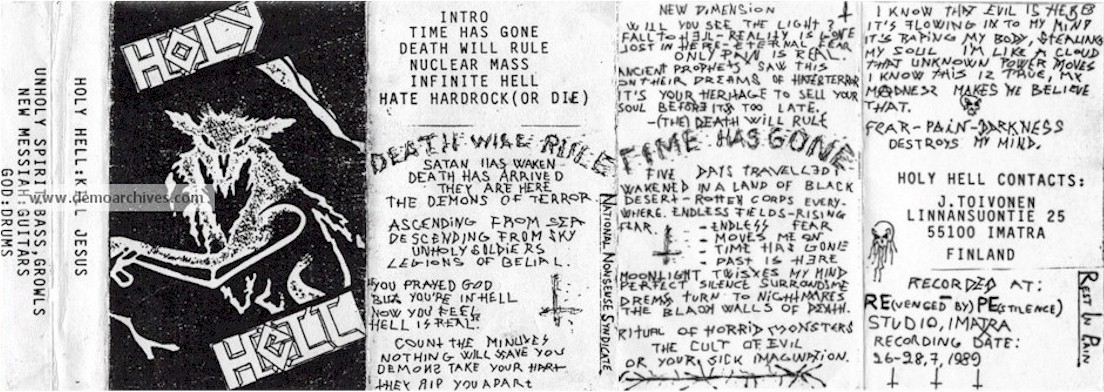 HOLY HELL:KILL JESUS
UNHOLY SPIRIT:BASS,GROWLS
NEW MESSIAH:GUITARS
GOD:DRUMS
HOLY
HELL
www.demoarchives.com
INTRO
TIME HAS GONE
DEATH WILL RULE
NUCLEAR MASS
INFINITE HELL
HATE HARDROCK(OR DIE)
DEATH WILL RULE
SATAN HAS WAKEN
DEATH HAS ARRIVED
THEY ARE HERE
THE DEMONS OF TERROR
ASCENDING FROM SEA
DESCENDING FROM SKY
UNHOLY SOLDIERS
LEGIONS OF BELIAL.
YOU PRAYED GOD
BUT YOU'RE IN HELL
NOW YOU FEEL
HELL IS REAL.
COUNT THE MINUTES
NOTHING WILL SAVE YOU
DEMONS TAKE YOUR HART
THEY RIP YOU APART
NATIONAL NONSENSE SYNDICATE
NEW DIMENSION
WILL YOU SEE THE LIGHT?
FALL TO HELL - REALITY IS GONE
LOST IN HERE-ETERNAL FEAR
ONLY PAIN IS REAL.
ANCIENT PROPHETS SAW THIS
ON THEIR DREAMS OF TERROR
IT'S YOUR HERITAGE TO SELL YOUR
SOUL BEFORE IT'S TOO LATE.
-(THE) DEATH WILL RULE
TIME HAS GONE
FIVE DAYS TRAVELLED I
WAKENED IN A LAND OF BLACK
DESERT - ROTTEN CORPS EVERY-
WHERE. ENDLESS FIELDS-RISING
FEAR.
- ENDLESS FEAR
- MOVES ME ON
- TIME HAS GONE
- PAST IS HERE
MOONLIGHT TWISXES MY MIND
PERFECT SILENCE SURROUNDIME
DREMS TURN TO NIGHTMARES
THE BLACK WALLS OF DEATH.
RITUAL OF HORRID MONSTERS
THE CULT OF EVIL
OR YOUR SICK IMAGINATION.
I KNOW THAT EVIL IS HERES
IT'S FLOWING IN TO MY MIND
IT'S RAPING MY BODY, STEALING
MY SOUL I'M LIKE A CLOUD
THAT UNKNOWN POWER MOVES
I KNOW THIS IZ TRUE, MY
MADNESZ MAKES ME BELIEVE
THAT.
FEAR-PAIN-DARKNESS
DESTROYS MY MIND.
HOLY HELL CONTACTS:
J.TOIVONEN
LINNANSUONTIE 25
55100 IMATRA
FINLAND
RECORDED AT:
RE(VENGED BY) PE(STILENCE)
STUDIO, IMATRA
RECORDING DATE:
26-28,7,1989
REST IN PAIN